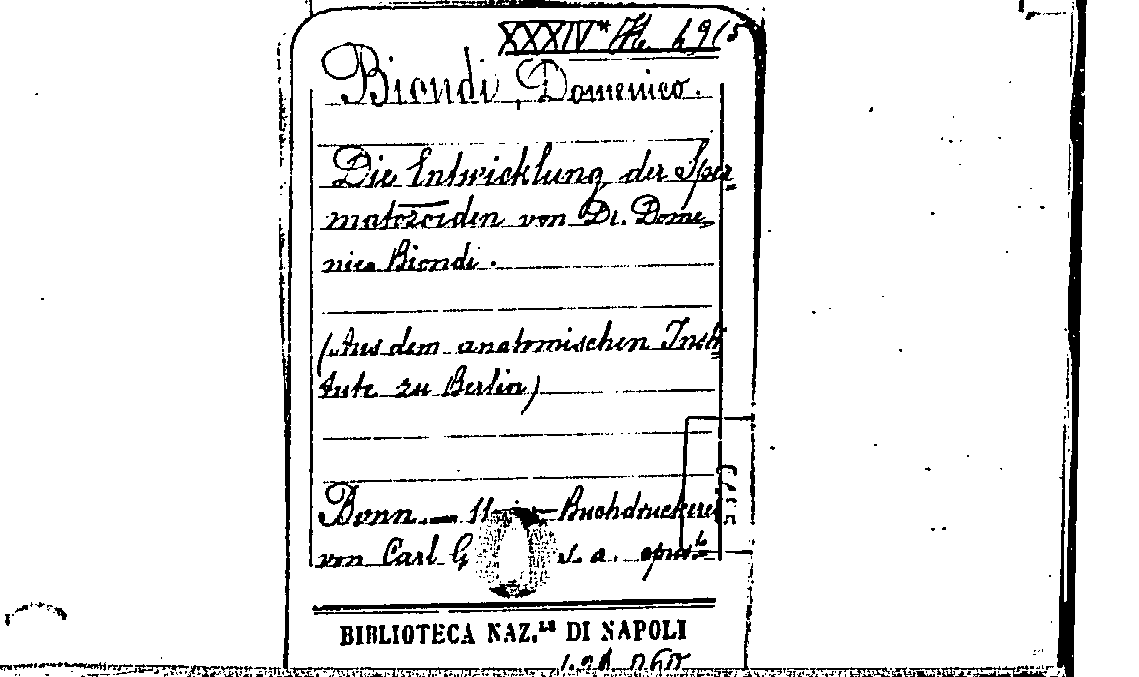 XXXIV* 
Biondi, Domenico.
Die Entwicklung der Sper=
matozoiden von Dr. Dome=
nico Biondi.
(Aus dem anatomischen Insti
tute zu Berlin)
Bonn — Buchdruckerei
von Carl G s. a.
BIBLIOTECA NAZ.LE DI NAPOLI